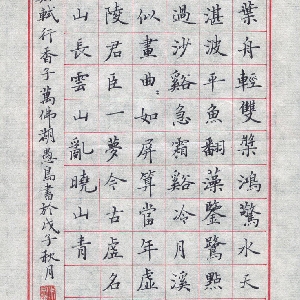 葉舟輕雙槳鴻驚水天
湛波平魚翻藻鑒鷺點
過沙谿急霜谿冷月溪
似畫曲〻如屏算當年虛
陵君臣一夢今古虛名
山長雲山亂曉山青
軾行香子萬佛湖愚島書於戊子秋月